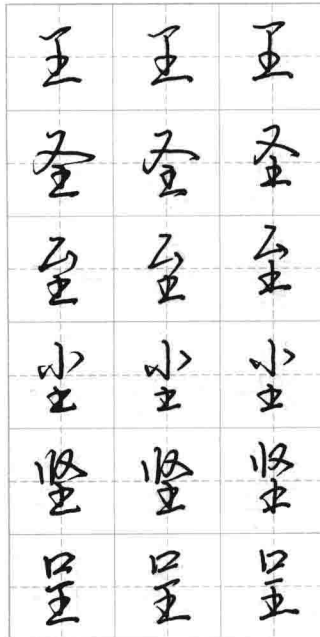 王 王 王
圣 圣 圣
至 至 至
尘 尘 尘
坚 坚 坚
呈 呈 呈